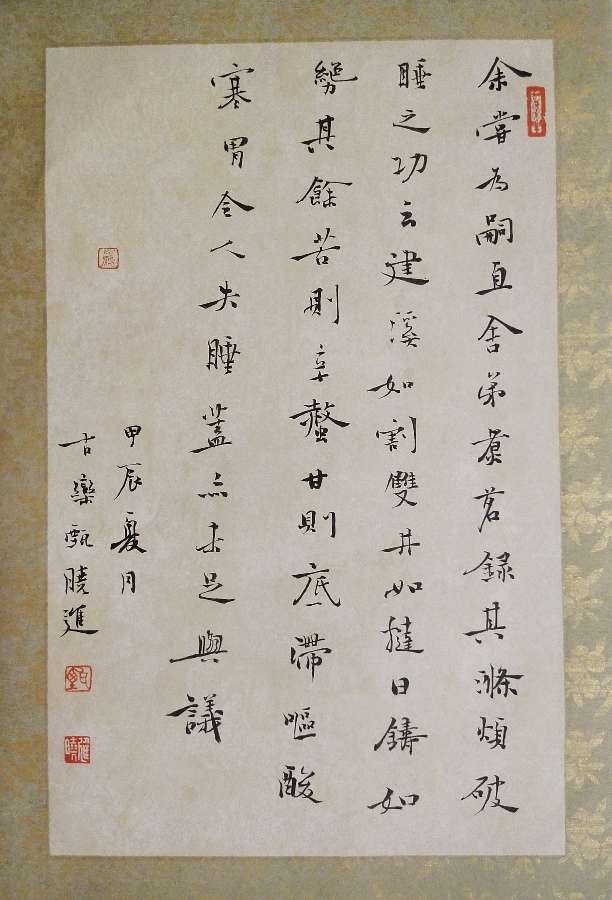 余嘗為嗣直舍弟煮茗録其滌煩破
睡之功云建溪如割雙井如撻日鑄如
其餘苦則辛螫甘則底滯嘔酸
寒胃令人失睡蓋亦未足與議
甲辰夏月
古欒甄曉進